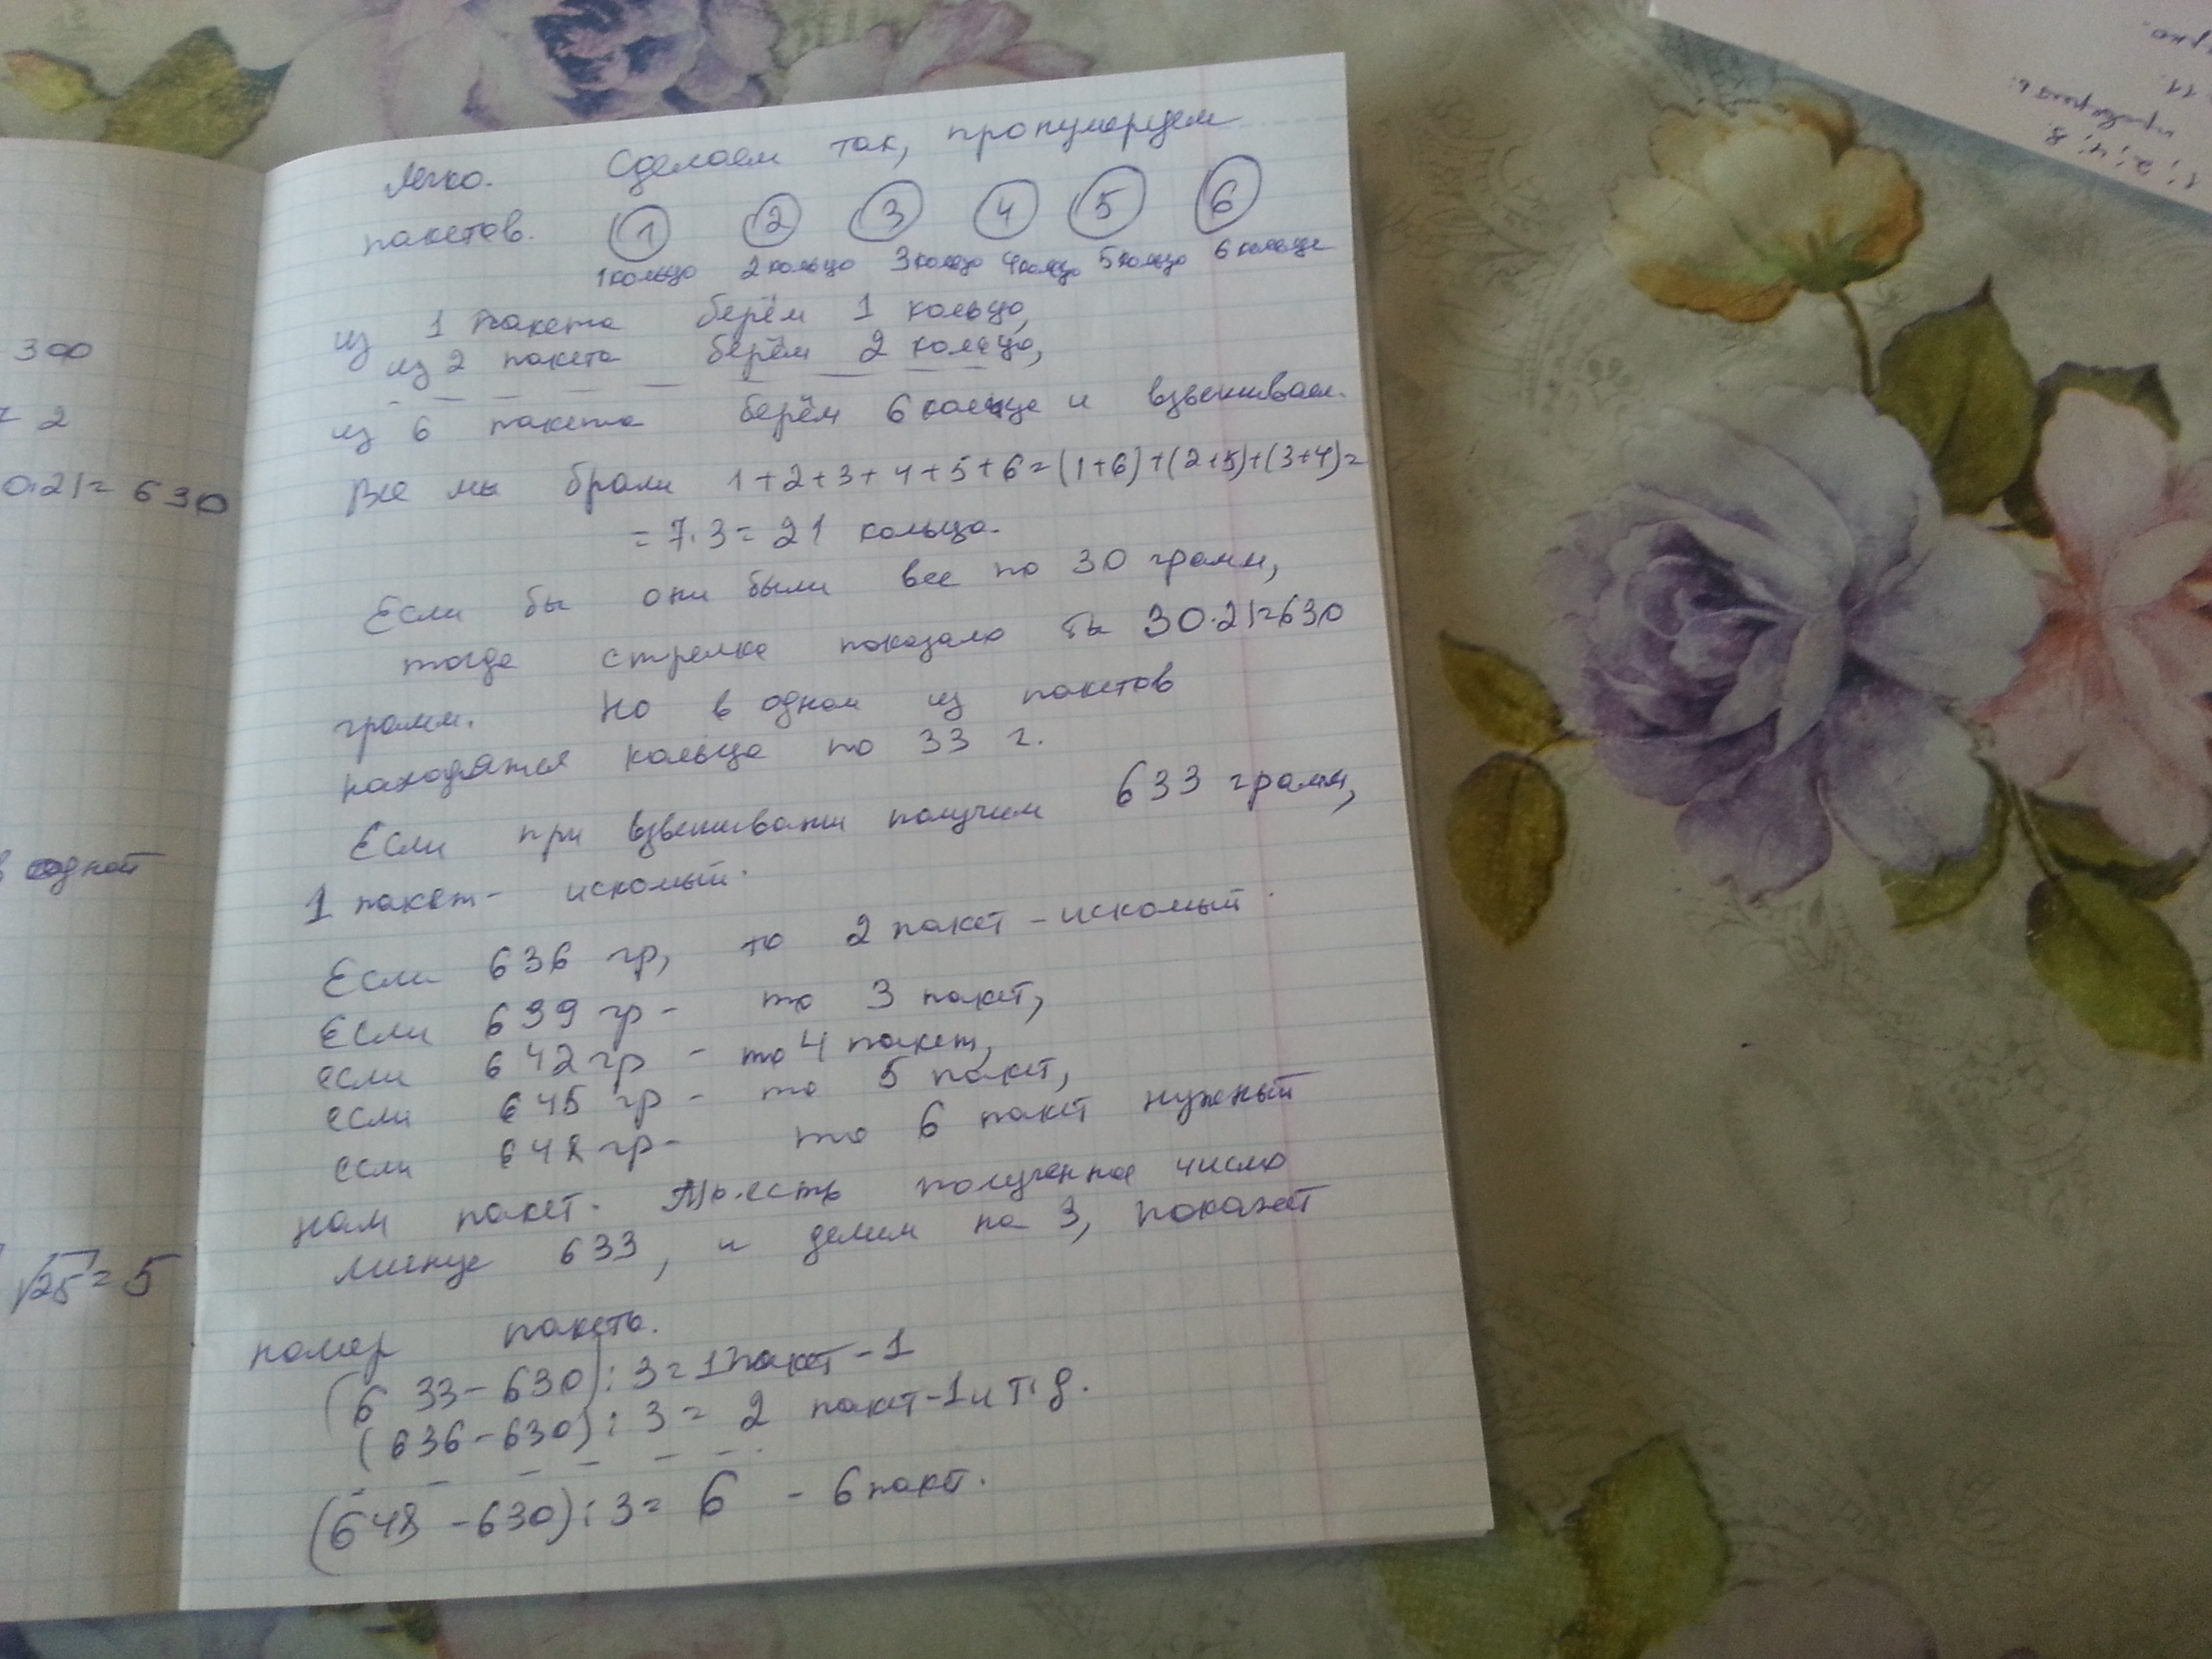 300
= 2
0·21= 630
в одной
√25 = 5
Легко. Сделаем так, пронумеруем
пакетов. 1 2 3 4 5 6
1 кольцо 2 кольцо 3 кольцо 4 кольцо 5 кольцо 6 кольце
из 1 пакета берём 1 кольцо,
из 2 пакета берём 2 кольцо,
из 6 пакета берём 6 кольце и взвешиваем.
Все мы брали 1+2+3+4+5+6=(1+6)+(2+5)+(3+4)=
= 7·3= 21 кольцо.
Если бы они были все по 30 грамм,
тогда стрелка показало бы 30·21=630
грамм. Но в одном из пакетов
находятся кольца по 33 г.
Если при взвешивании получим 633 грамм,
1 пакет- искомый.
Если 636 гр, то 2 пакет - искомый.
Если 639 гр - то 3 пакет,
если 642 гр - то 4 пакет,
если 645 гр - то 5 пакет,
если 648 гр - то 6 пакет нужный
нам пакет. То.есть полученное число
минус 633, и делим на 3, покажет
номер пакета.
(633-630):3=1 пакет-1
(636-630):3= 2 пакет-1 и т.д.
(648-630):3= 6 - 6 пакт.
1; 2; 4; 8.
проверять.
11.